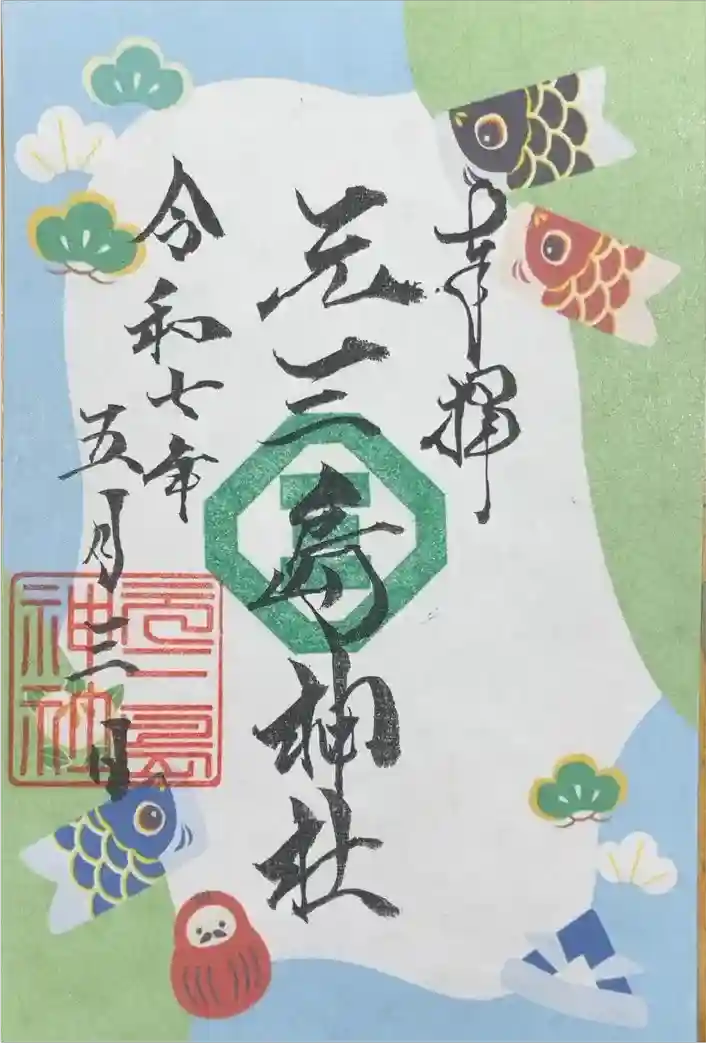 奉拝
元三島神社
令和七年
五月三日
元三島神社